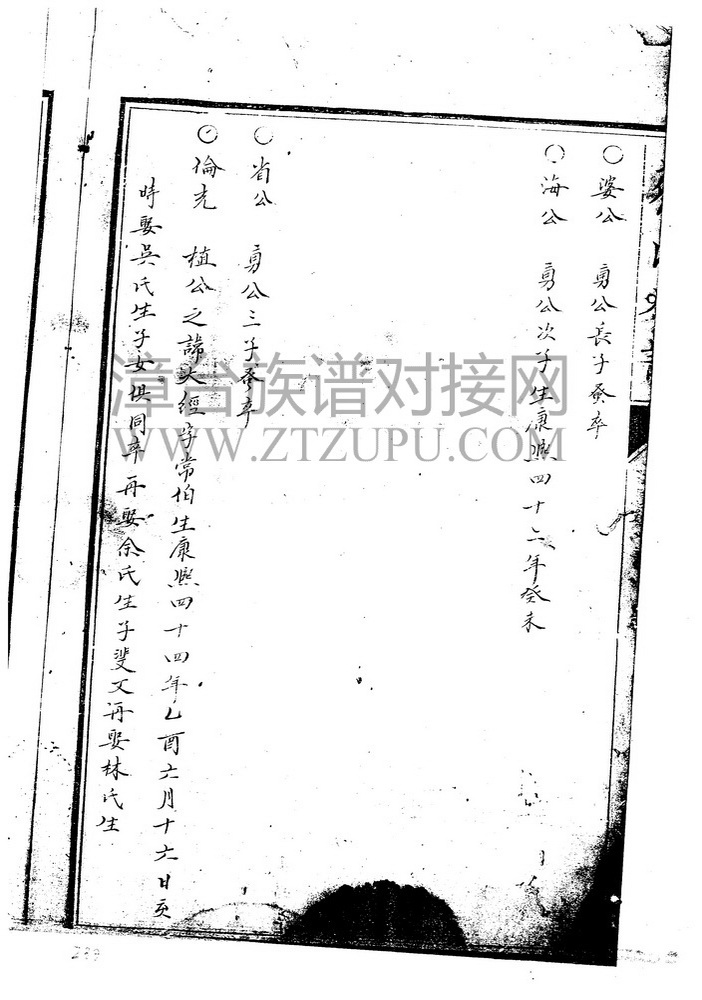 婆公 勇公長子蚤卒
海公 勇公次子生康熙四十二年癸未
省公 勇公三子蚤卒
倫光 植公之諱大經字常怕生康熙四十四年乙酉六月十六日亥
時娶吳氏生子女俱同卒再娶余氏生子斐文再娶林氏生
漳台族谱对接网
WWW.ZTZUPU.COM